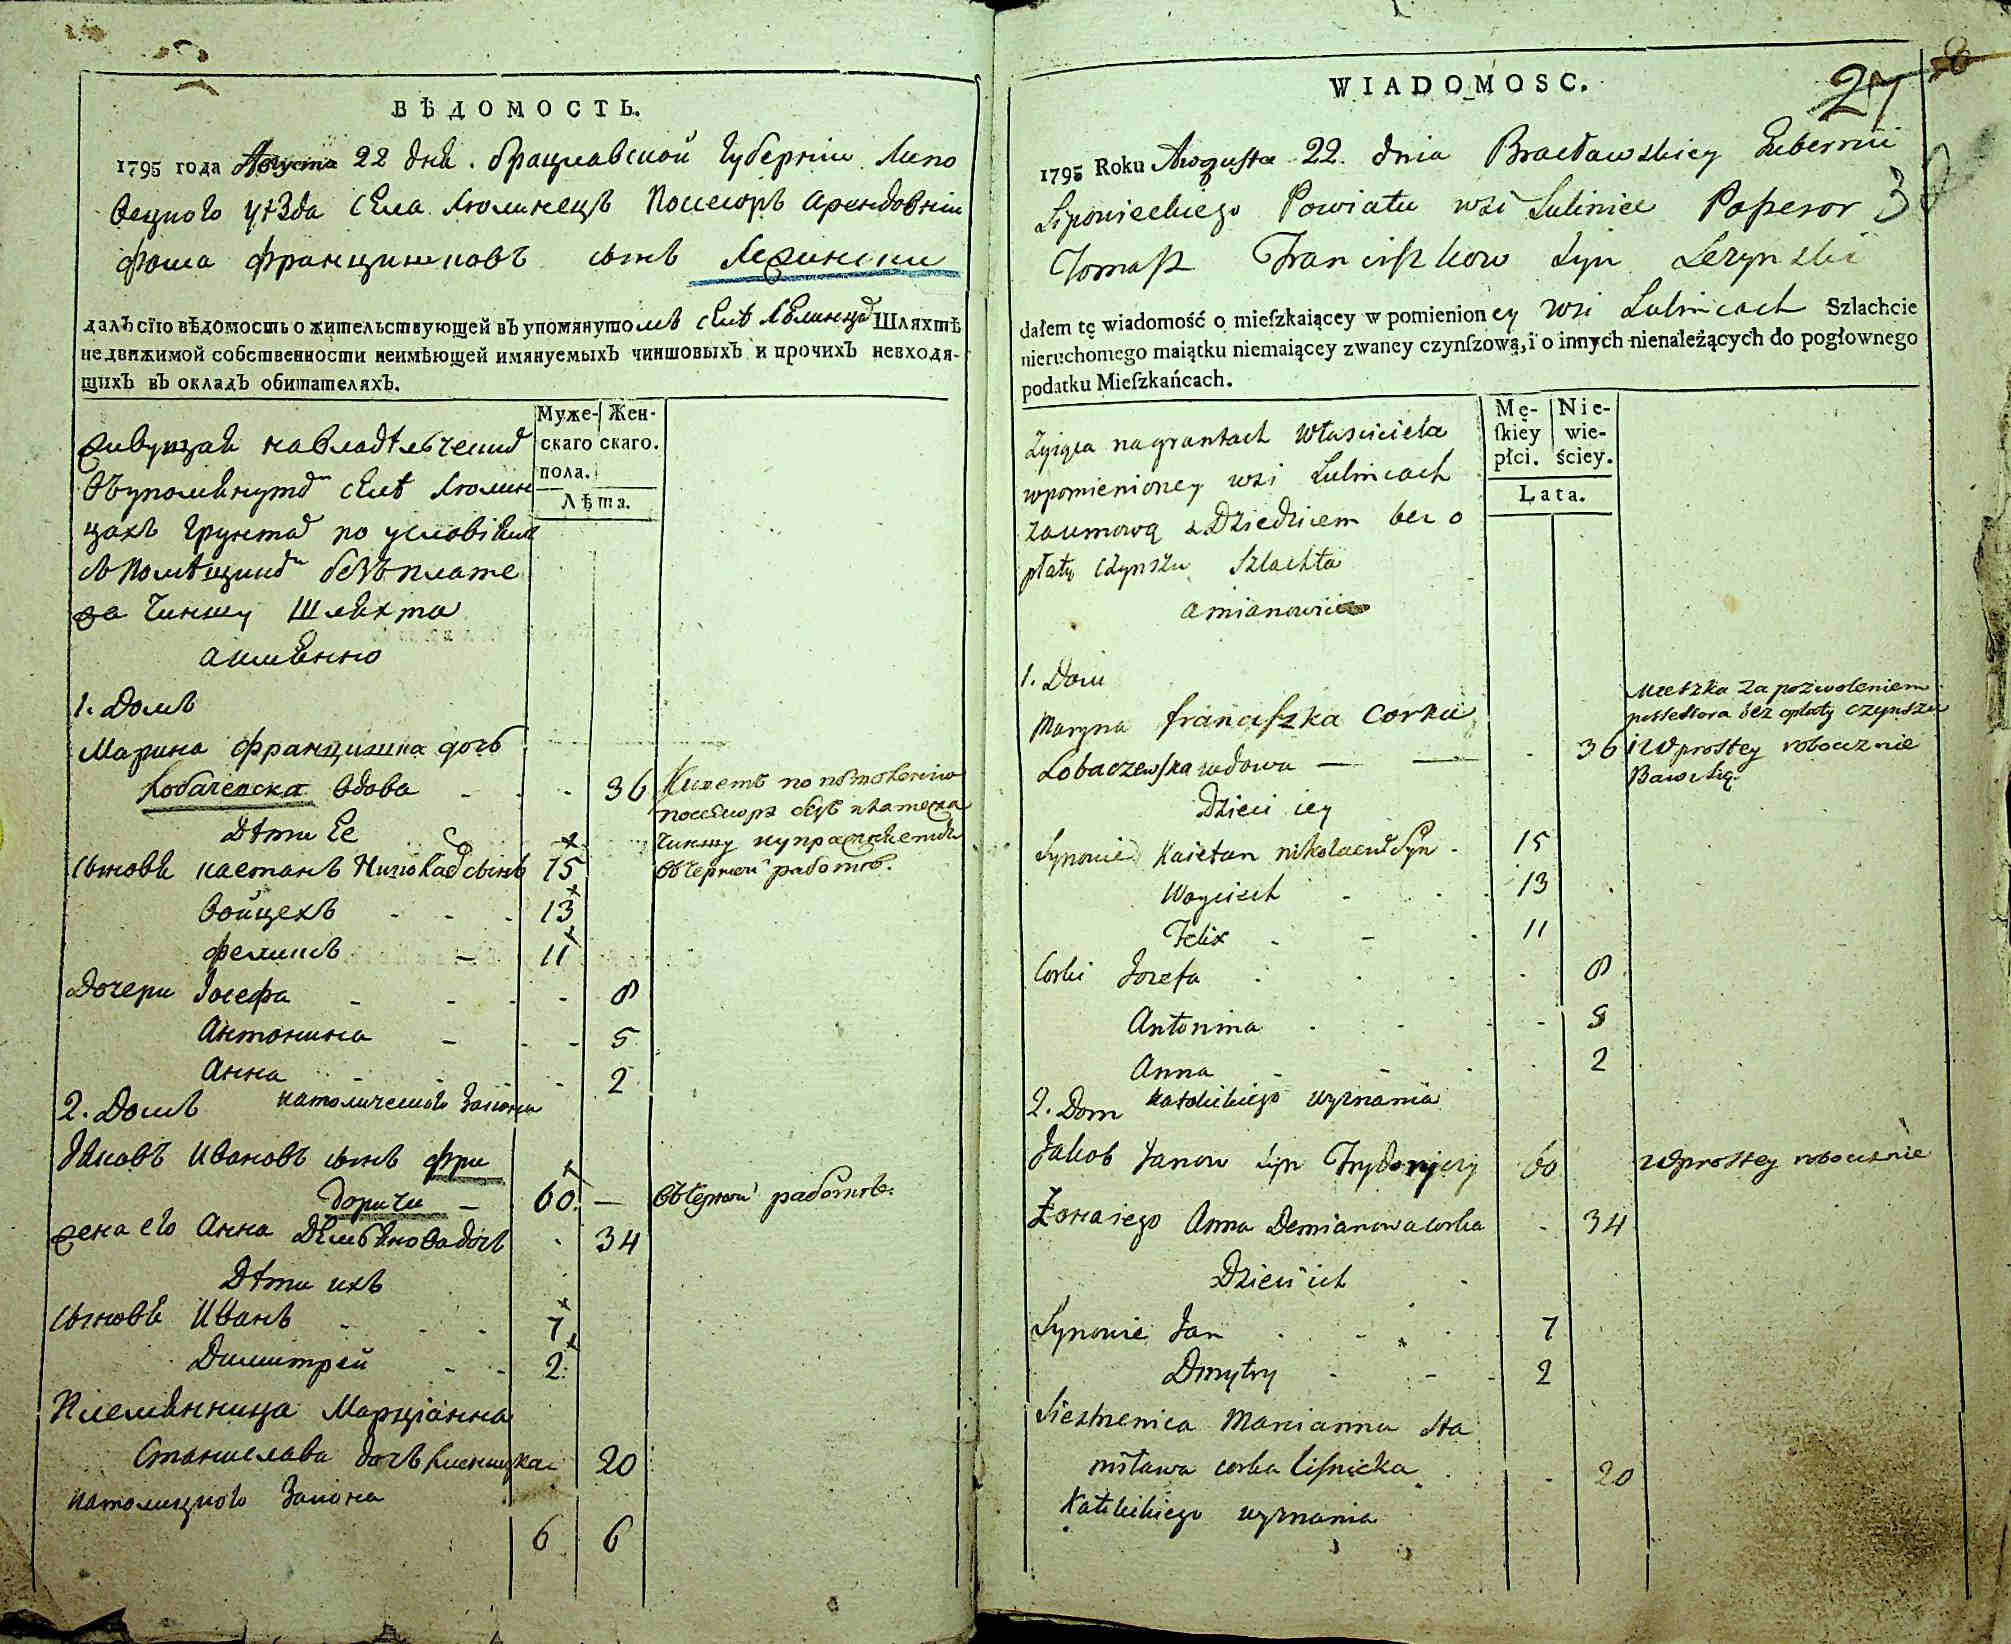 ВѢДОМОСТЬ.
1795 года Августа 22 дня. Брацлавской Губерніи Липо
вецкого уѣзда села Люлинецъ Поссесоръ арендовній
Фома Францишковъ сынъ
далъ сїю вѣдомость о жительствующей въ упомянутомъ селѣ Шляхтѣ
недвижимой собственности неимѣющей имянуемыхъ чиншовыхъ и прочихъ невходя-
щихъ въ окладъ обитателяхъ.
Муже- Жен-
скаго скаго.
пола.
Лѣта.
на владѣльческ
въ упомянут селѣ Люлин
цахъ грунта по условіям
съ помѣщик безъ плате
за чиншу Шляхта
а имянно
1. Домъ
Марина Францишка дочь
Лобачевска вдова - - - 36
Дѣти Ее
сыновя Каетанъ Николаев сынъ 15
Войцехъ - - - 13
Феликсъ - 11
Дочери Іосефа - - - - 8
Антонина - - - 5
Анна - - - 2
Живетъ по позволенію
поссесора безъ платежа
чиншу упражняется
въ черной работѣ.
2. Домъ католического закона
Яковъ Ивановъ сынъ Фри
доричи - 60. — въ черной работѣ.
жена его Анна Демьянова дочь - 34
Дѣти ихъ
сыновя Иванъ - - - 7
Димитрей - - 2
Племянница Марціанна
Станислава дочь Лисницкая 20
католицкого закона
6 6
WIADOMOSC.
27
1795 Roku Augusta 22. dnia Bracławskiey Gubernii
Lipowieckiego Powiatu wsi Luliniec Possesor
Tomasz Franciszkow Syn Lezynski
dałem tę wiadomość o mieſzkaiącey w pomienioney wsi Lulincach Szlachcie
nieruchomego maiątku niemaiącey zwaney czynſzową, i o innych nienależących do pogłownego
podatku Mieſzkańcach.
Mę- Nie-
ſkiey wie-
płci. ściey.
Lata.
Zyiąca na gruntach Własciciela
wpomienioney wsi Lulincach
za umową z Dziedzicem bez o
płaty czynszu Szlachta
a mianowicie
1. Dom
Maryna franciszka Corka
Lobaczewska wdowa — — - 36
Mieszka za pozwoleniem
possessora bez opłaty czynszu
i w prostey roboczznie
Bawi się
Dzieci iey
Synowie Kaietan nikolaiew Syn - 15
Woyciech - - 13
Felix - - - 11
Corki Jozefa - - - - 8
Antonina - - - - 5
Anna - - - - 2
2. Dom Katolickiego wyznania
Jakob Janow Syn Frydoryczy 60 w prostey roboczznie
Żona iego Anna Demianowa corka - 34
Dzieci ich
Synowie Jan - - - - 7
Dmytry - - - 2
Siestrzenica Marianna Sta
nisława corka Lisnicka - - 20
Katolickiego wyznania